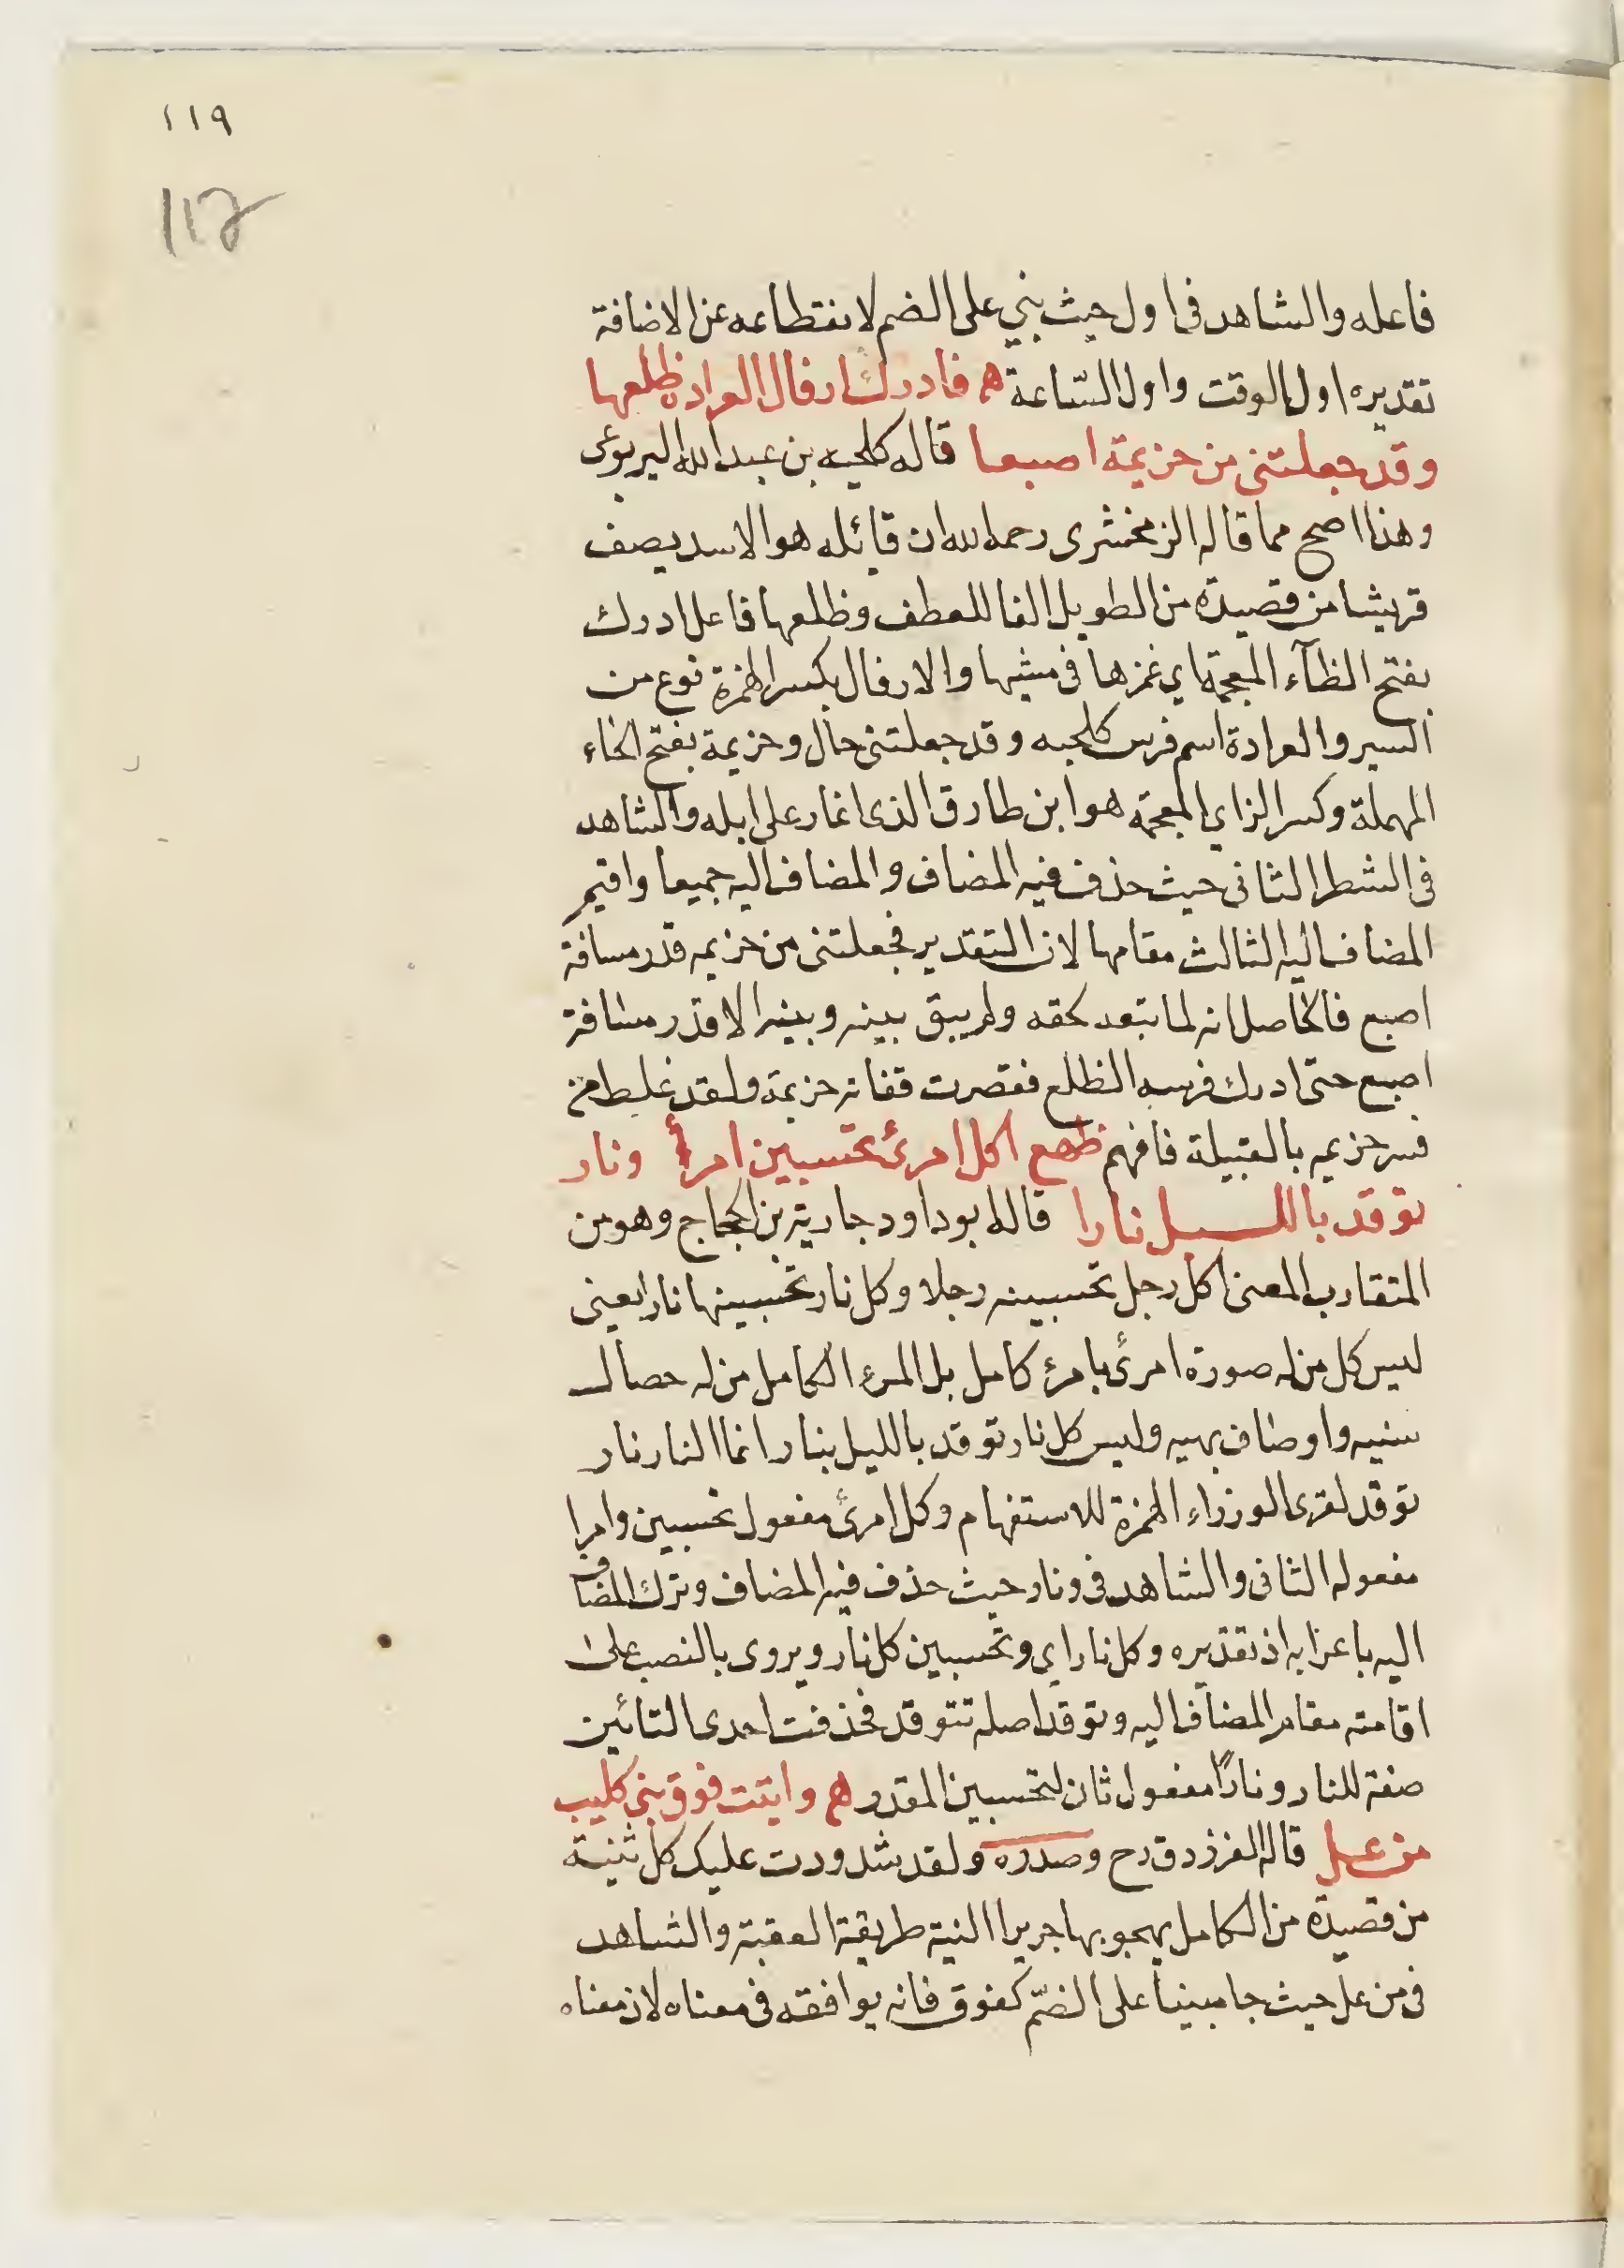 ١١٩
112
فاعله والشاهد فى اول حيث بني على الضم لانقطاعه عن الاضافة
تقديره اول الوقت واول السّاعة هـ فادرك ارقال العرادة ظلعها
وقد جعلتنى من حزيمة اصبعا قاله كلحبه بن عبد الله اليربوعى
وهذا اصح مما قاله الزمخشرى رحمه الله ان قائله هو الاسد يصف
قريشا من قصيدة من الطويل الفا للعطف وظلعها فاعل ادرك
بفتح الظآء المعجمة اي غمزها فى مشيها والارفال بكسر الهمزة نوع من
السير والعرادة اسم فرس كلحبه وقد جعلتنى حال وحزيمة بفتح الحاء
المهملة وكسر الزاي المعجمة هو ابن طارق الذى اغار على ابله والشاهد
فى الشطر الثانى حيث حذف فيه المضاف والمضاف اليه جميعا واقيم
المضاف اليه الثالث مقامها لان التقدير فجعلتنى من حزيمه قدر مسافة
اصبع فالحاصل انه لما تبعد لحقه ولم يبق بينه وبينه الا قدر مسافة
اصبع حتى ادرك فرسه الظلع فقصرت ففاته حزيمة ولقد غلط من
فسر حزيمه بالقبيلة فافهم ظهع اكل امرئ تحسبين امرأ ونار
توقد بالليل نارا قاله ابو داود جارية بن الحجاج وهو من
المتقارب المعنى اكل رجل تحسبينه رجلا وكل نار تحسبينها نارا يعنى
ليس كل من له صورة امرئ بامرئ كامل بل المرء الكامل من له خصال
سنيه واوصاف بهيه وليس كل نار توقد بالليل بنار انما النار نار
توقد لقرى الوزراء الهمزة للاستفهام وكل امرئ مفعول تحسبين وامرا
مفعوله الثانى والشاهد فى ونار حيث حذف فيه المضاف وترك المضاف
اليه باعرابه اذ تقديره وكل نار اي وتحسبين كل نار ويروى بالنصب على
اقامته مقام المضاف اليه وتوقد اصله تتوقد فحذفت احدى التائين
صفة للنار ونارًا مفعول ثان لتحسبين المقدر هـ واتيت فوق بنى كليب
من عل قاله الفرزدق رح وصدره ولقد شددت عليك كل ثنية
من قصيدة من الكامل يهجو بها جريرا النية طريقة العقبة والشاهد
فى من عل حيث جا مبنيا على الضمّ كفوق فانه يوافقه فى معناه لان معناه